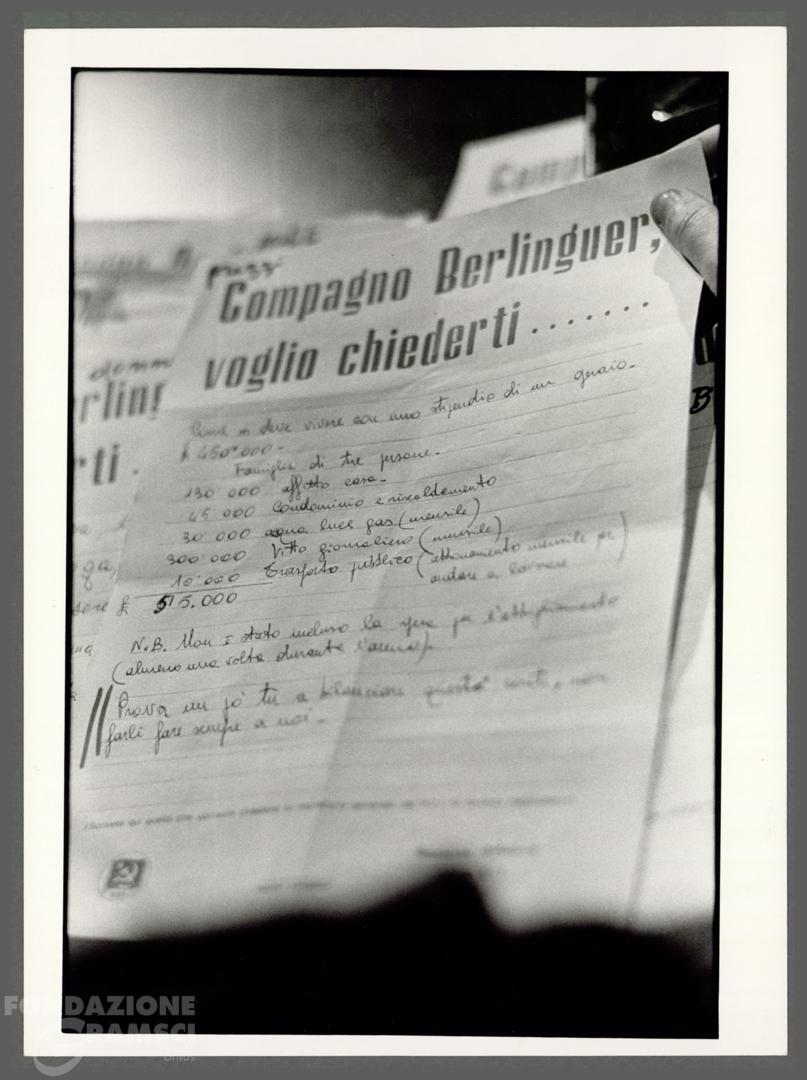 prezzi
Compagno Berlinguer,
voglio chiederti.......
Come si deve vivere con uno stipendio di un operaio-
£ 450.000-
Famiglia di tre persone-
130 000 affitto casa-
45 000 Condominio e riscaldamento
30 000 acqua luce gas (mensile)
300.000 Vitto giornaliero (mensile)
10.000 Trasporto pubblico (abbonamento mensile per
andare a lavorare
£ 515.000
N.B. Non è stato incluso la spesa per l'abbigliamento
(almeno una volta durante l'anno).
Prova un pò tu a bilanciare questi conti, non
farli fare sempre a noi-
Comp
domm
rling
ti.
B
FONDAZIONE
GRAMSCI
onlus